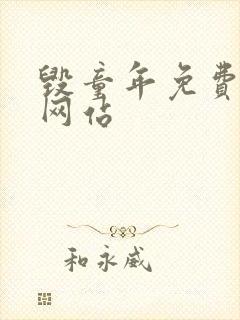 毁童年免费
网站
和永威